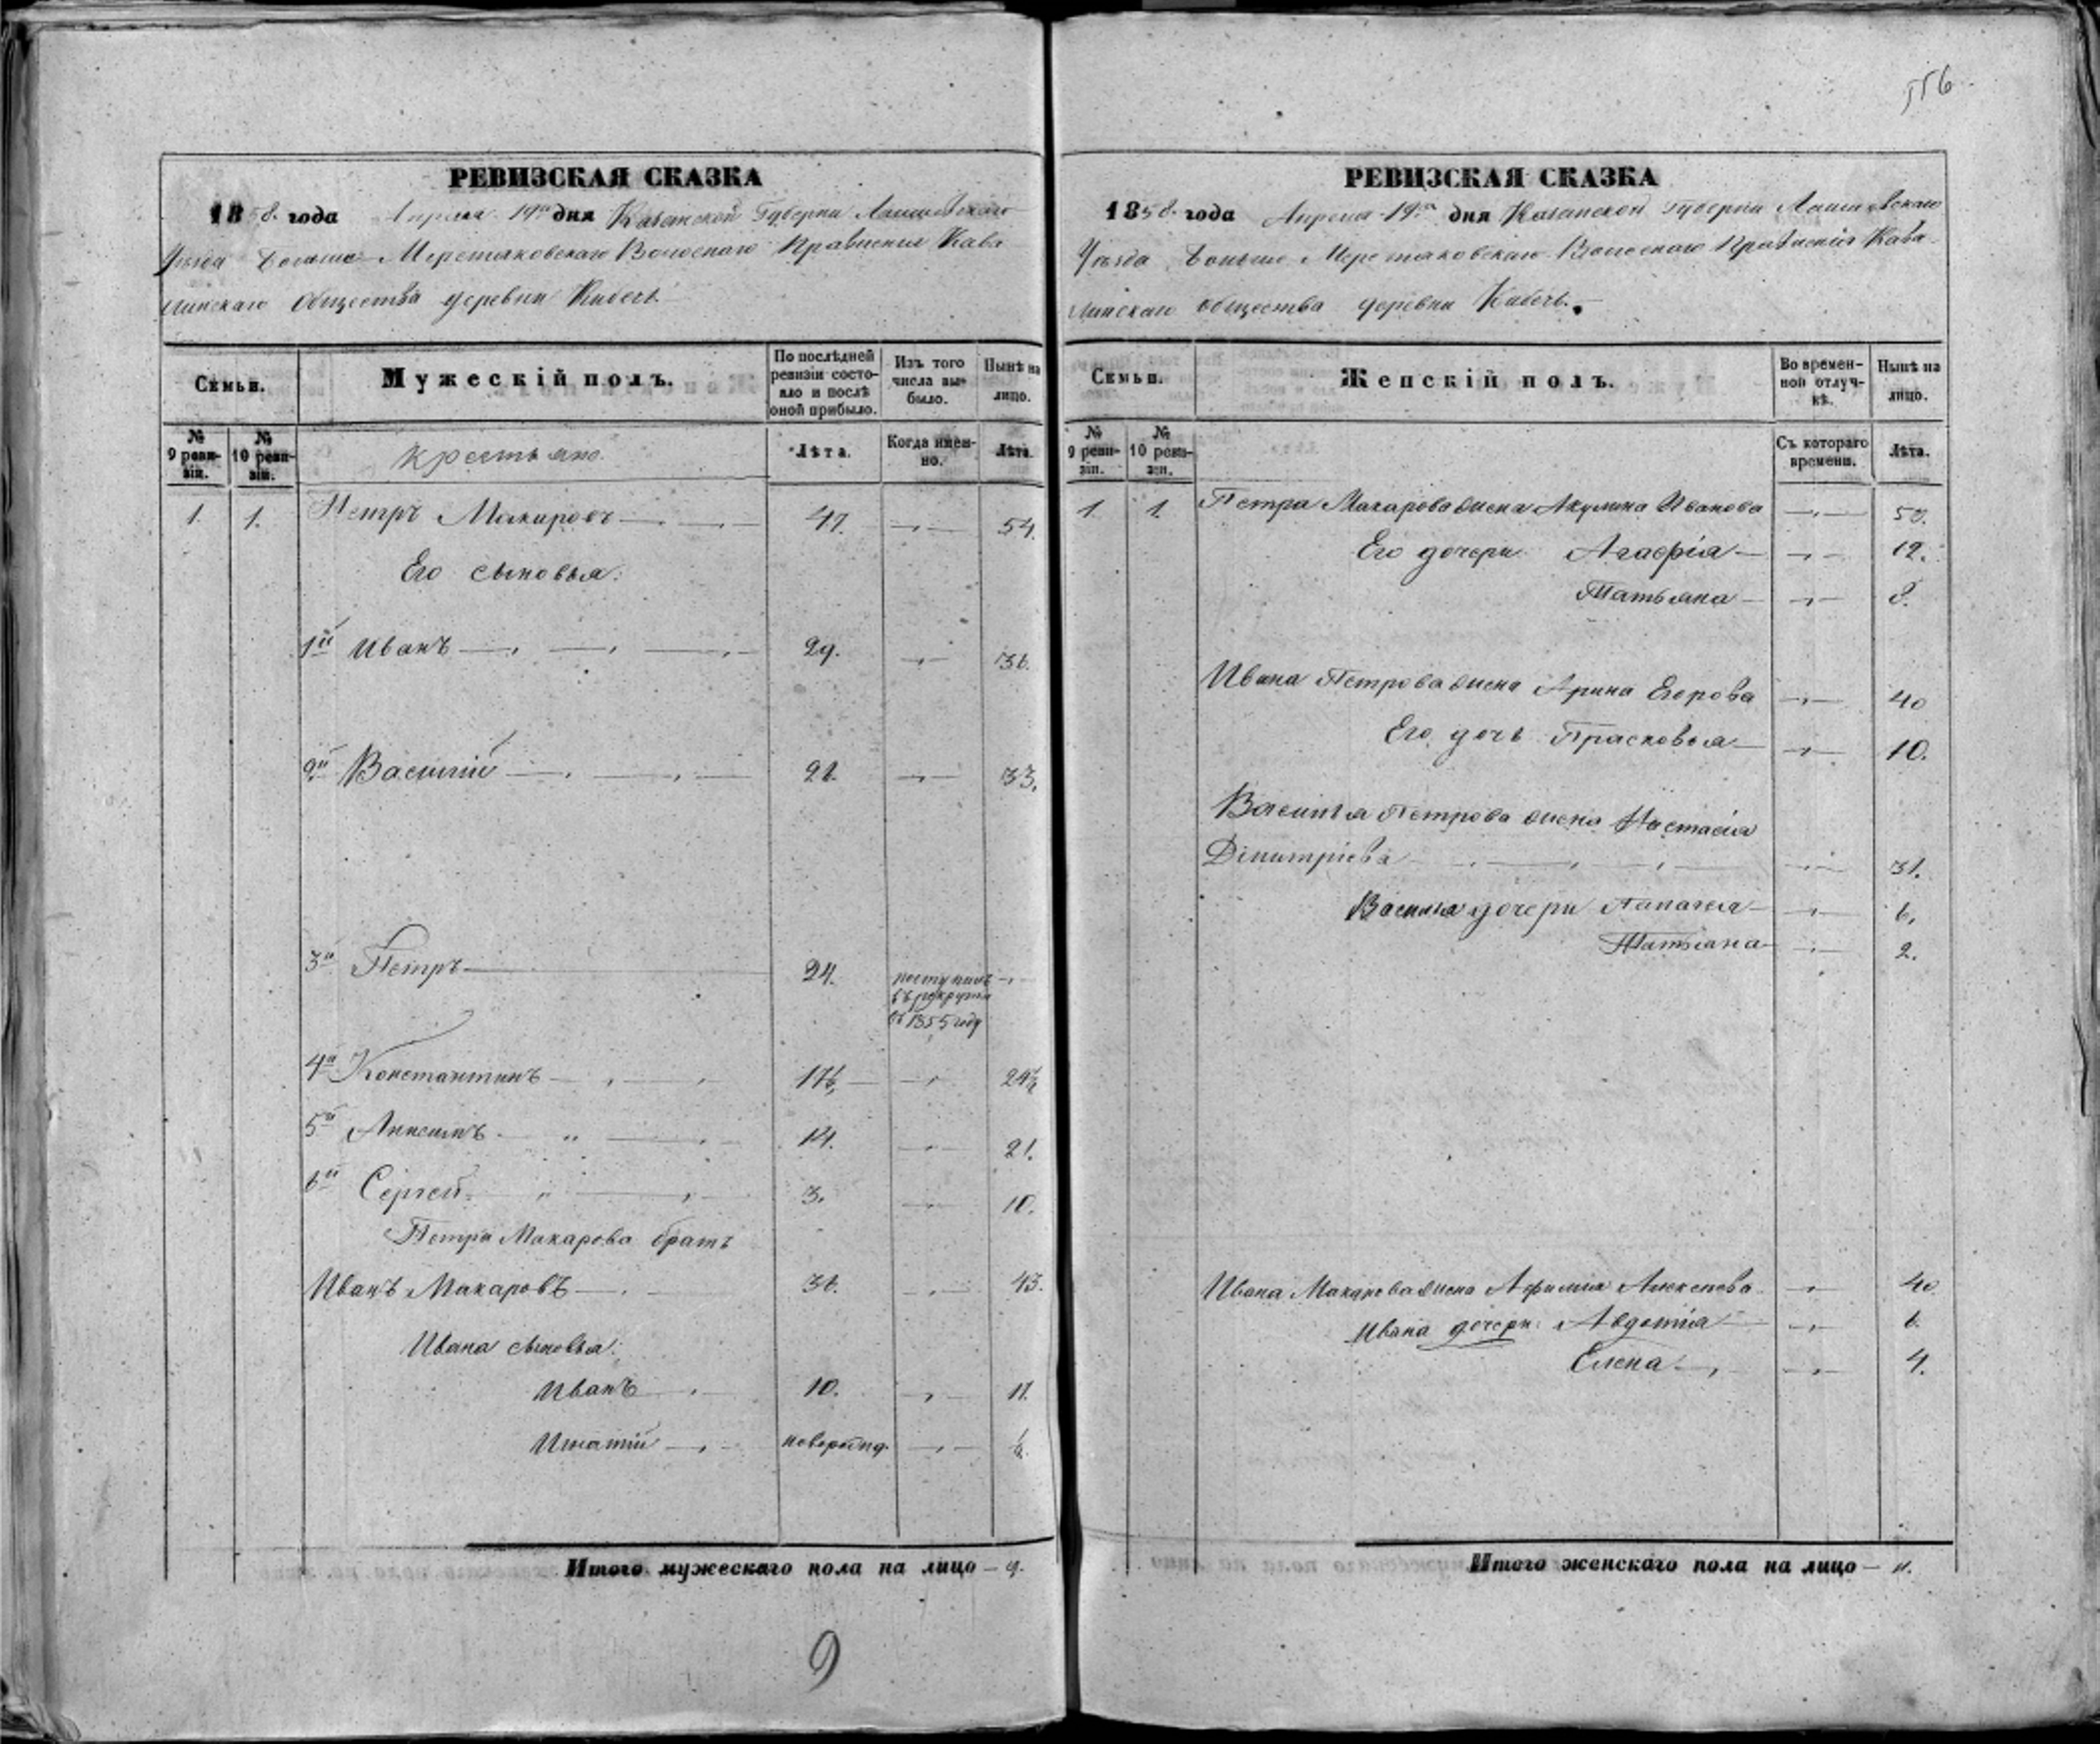 556
РЕВИЗСКАЯ СКАЗКА
1858. года Апреля 19го дня Казанской Губерни Лаишевскаго
Уезда Больше-Меретяковскаго Волоснаго Правления Кава
линскаго Общества деревни Кибечь.
Семьи.
Мужескій полъ.
По послѣдней ревизіи состояло и послѣ оной прибыло.
Изъ того числа выбыло.
Нынѣ на лицо.
№ 9 ревизіи.
№ 10 ревизіи.
крестьяне.
Лѣта.
Когда именно.
Лѣта.
1. 1. Петръ Макаровъ 47. 54.
Его сыновья:
1й Иванъ 29. 36.
2й Василій 26. 33.
3й Петръ 24. поступилъ
въ рекруты
въ 1855 году
4й Константинъ 17½ 24½
5й Анисимъ 14. 21.
6й Сергей 3. 10.
Петра Макарова братъ
Иванъ Макаровъ 36. 43.
Ивана сыновья:
Иванъ 10. 17.
Игнатій новорожд. ½
Итого мужескаго пола на лицо — 9.
9
РЕВИЗСКАЯ СКАЗКА
1858. года Апреля 19го дня Казанской Губерни Лаишевскаго
Уезда Больше Меретяковскаго Волоснаго Правления Кава-
линскаго общества деревни Кибечь.
Семьи.
Женскій полъ.
Во временной отлучкѣ.
Нынѣ на лицо.
№ 9 ревизіи.
№ 10 ревизіи.
Съ котораго времени.
Лѣта.
1 1. Петра Макарова жена Акулина Иванова 50.
Его дочери Агафія 12.
Татьяна 8.
Ивана Петрова жена Арина Егорова 40
Его дочь Прасковья 10.
Василья Петрова жена Настасія
Дімитріева 31.
Василья дочери Палагея 6.
Татьяна 2.
Ивана Макарова жена Афимия Алексеева 40
Ивана дочери: Авдотія 6.
Елена 4.
Итого женскаго пола на лицо — 11.